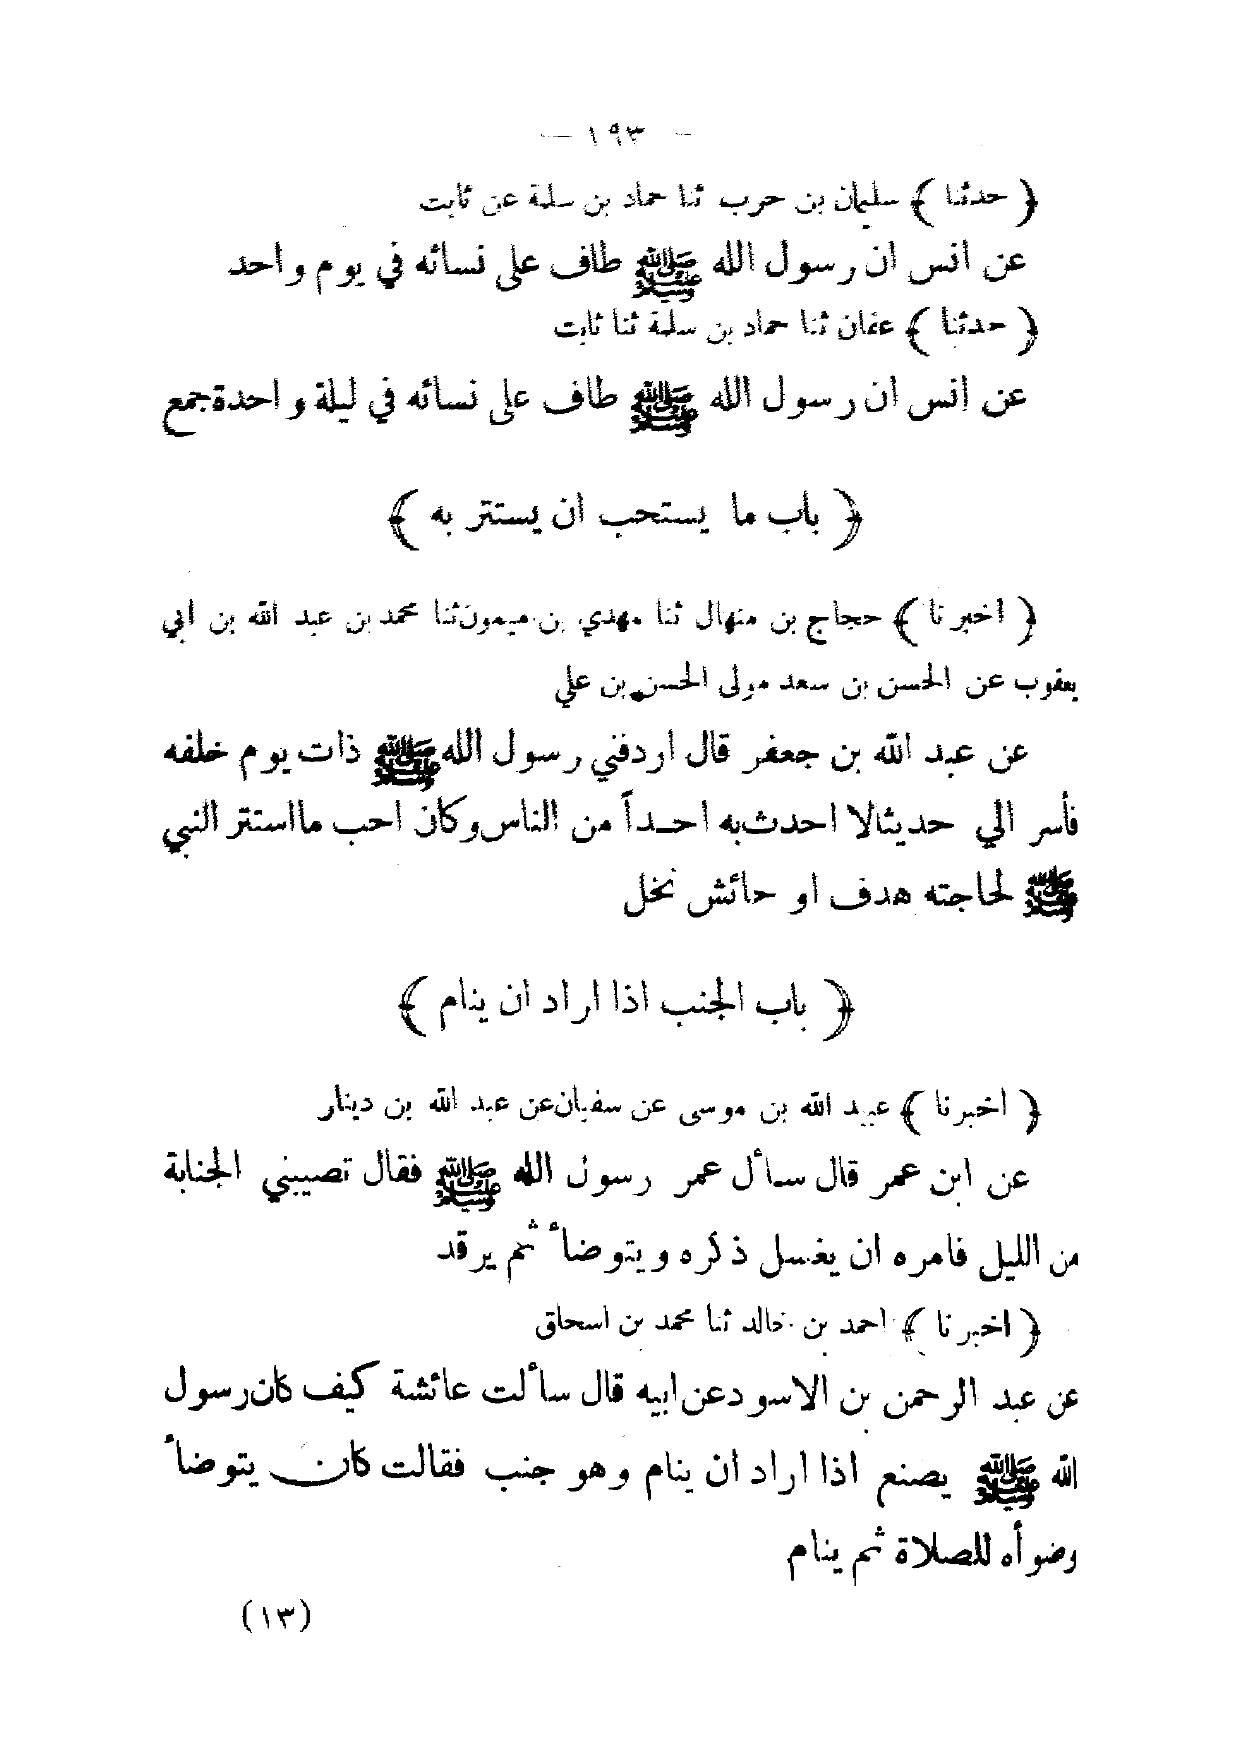 — ١٩٣ —
﴿ حدثنا ﴾ سليمان بن حرب ثنا حماد بن سلمة عن ثابت
عن انس ان رسول الله ﷺ طاف على نسائه في يوم واحد
﴿ حدثنا ﴾ عفان ثنا حماد بن سلمة ثنا ثابت
عن انس ان رسول الله ﷺ طاف على نسائه في ليلة واحدة جمع
﴿ باب ما يستحب ان يستتر به ﴾
﴿ اخبرنا ﴾ حجاج بن منهال ثنا مهدي بن ميمون ثنا محمد بن عبد الله بن ابي
يعقوب عن الحسن بن سعد مولى الحسن بن علي
عن عبد الله بن جعفر قال اردفني رسول الله ﷺ ذات يوم خلفه
فأسر الي حديثا لا احدث به احداً من الناس وكان احب ما استتر النبي
ﷺ لحاجته هدف او حائش نخل
﴿ باب الجنب اذا اراد ان ينام ﴾
﴿ اخبرنا ﴾ عبيد الله بن موسى عن سفيان عن عبد الله بن دينار
عن ابن عمر قال سأل عمر رسول الله ﷺ فقال تصيبني الجنابة
من الليل فامره ان يغسل ذكره ويتوضأ ثم يرقد
﴿ اخبرنا ﴾ احمد بن خالد ثنا محمد بن اسحاق
عن عبد الرحمن بن الاسود عن ابيه قال سألت عائشة كيف كان رسول
الله ﷺ يصنع اذا اراد ان ينام وهو جنب فقالت كان يتوضأ
وضوأه للصلاة ثم ينام
(١٣)